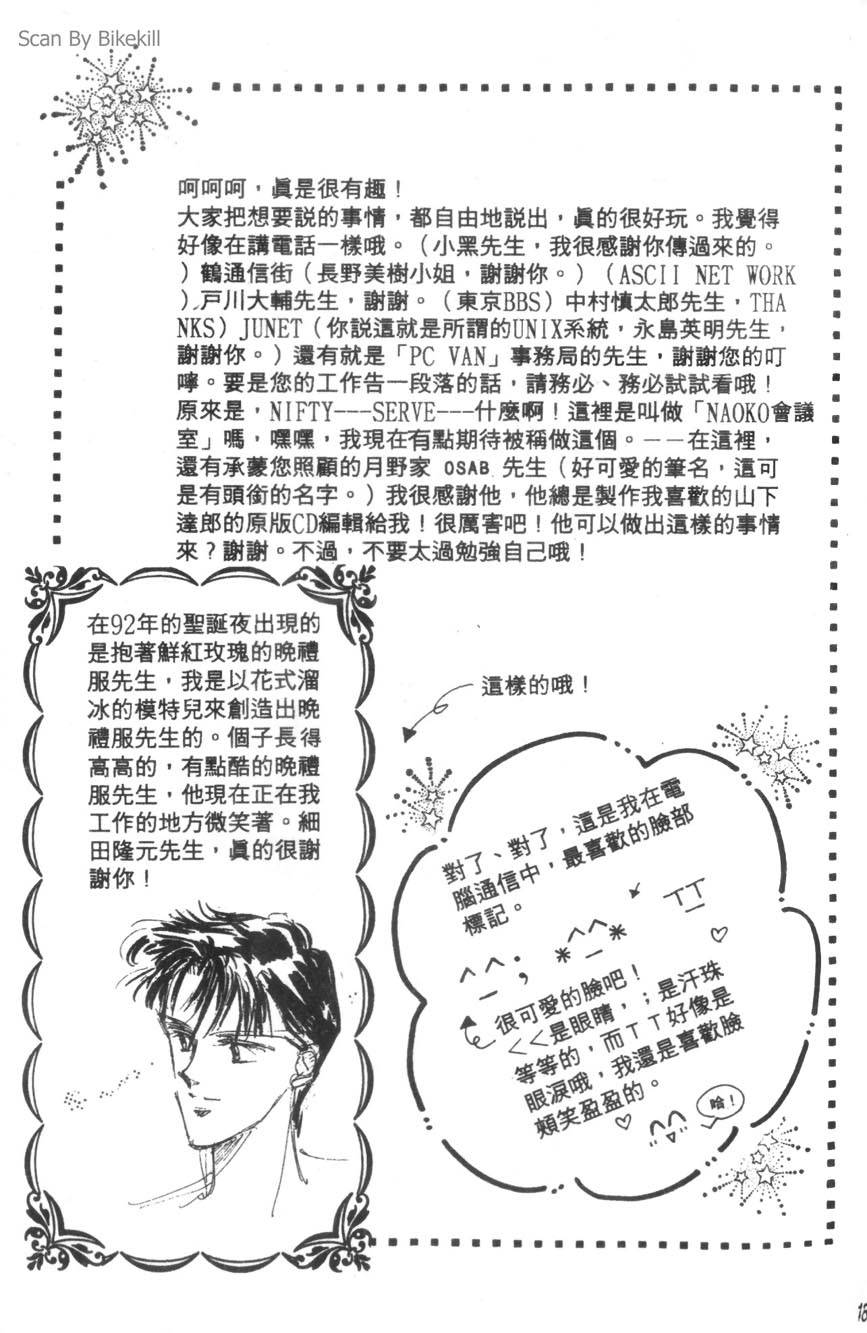 Scan By Bikekill
呵呵呵，眞是很有趣！
大家把想要説的事情，都自由地説出，眞的很好玩。我覺得
好像在講電話一樣哦。（小黑先生，我很感謝你傳過來的。
）鶴通信街（長野美樹小姐，謝謝你。）（ASCII NET WORK
）戸川大輔先生，謝謝。（東京BBS）中村慎太郎先生，THA
NKS）JUNET（你説這就是所謂的UNIX系統，永島英明先生，
謝謝你。）還有就是「PC VAN」事務局的先生，謝謝您的叮
嚀。要是您的工作告一段落的話，請務必、務必試試看哦！
原來是，NIFTY---SERVE---什麼啊！這裡是叫做「NAOKO會議
室」嗎，嘿嘿，我現在有點期待被稱做這個。——在這裡，
還有承蒙您照顧的月野家 OSAB 先生（好可愛的筆名，這可
是有頭銜的名字。）我很感謝他，他總是製作我喜歡的山下
達郎的原版CD編輯給我！很厲害吧！他可以做出這樣的事情
來？謝謝。不過，不要太過勉強自己哦！
在92年的聖誕夜出現的
是抱著鮮紅玫瑰的晚禮
服先生，我是以花式溜
冰的模特兒來創造出晚
禮服先生的。個子長得
高高的，有點酷的晚禮
服先生，他現在正在我
工作的地方微笑著。細
田隆元先生，眞的很謝
謝你！
這樣的哦！
對了、對了，這是我在電
腦通信中，最喜歡的臉部
標記。
^_^; *^_^* T_T
很可愛的臉吧！
<<是眼睛，;是汗珠
等等的，而TT好像是
眼淚哦，我還是喜歡臉
頰笑盈盈的。
哈！
18